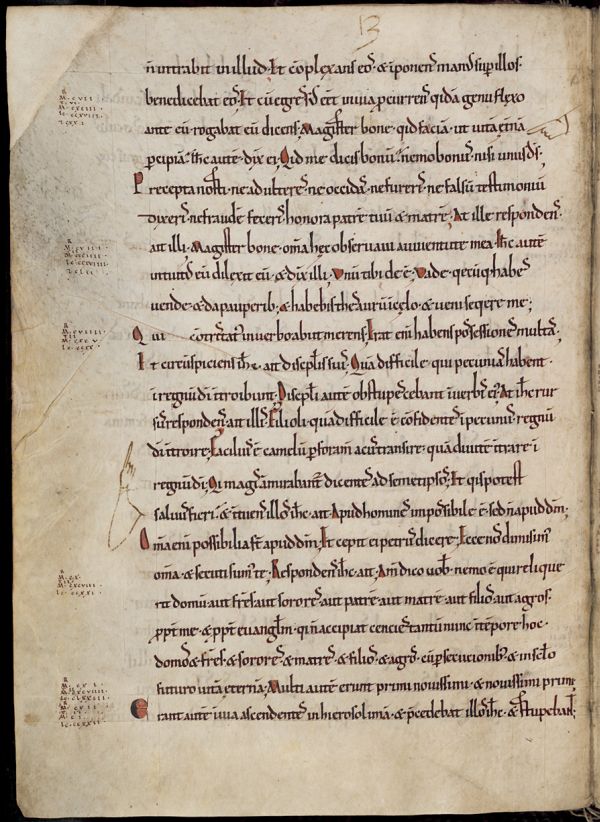 13
n̄ intrabit in illud. Et c̄oplexans eos. & īponens manus sup illos.
benedicebat eos. Et cū egressus eēt in uia p̄currens qidā genu flexo
ante eū rogabat eū dicens. Magister bone. qid faciā. ut uitā et̄nā
pcipiā. Ih̄c autē dix̄ ei. Qid me dicis bonū. nemo bonus. nisi unus d̄s.
Precepta nosti. ne adulteres. ne occidas. ne fureris. ne falsū testimoniū
dixeris. ne fraudē feceris. honora patrē tuū & matrē. At ille respondens.
ait illi. Magister bone. om̄a hec obseruaui a iuuentute mea. Ih̄c autē
intuitus eū dilexit eū. & dix̄ illi. Vnū tibi deē. Vade. qecūq habes
uende. & da pauperib. & habebis thesaurū in celo. & ueni seqere me;
Qui c̄otristatus in uerbo abiit merens. Erat eni habens possessiones multas.
Et circūspiciens ih̄c. ait discipl̄is suis. Quā difficile. qui pecunias habent.
i regnū dī ītroibunt. Discipl̄i autē obstupescebant ī uerbis eius. At ih̄c rur
sus respondens ait illis. Filioli. quā difficile ē c̄ofidentes ī pecuniis. regnū
dī ītroire. Facilius ē camelū p foramē acus transire. quā diuitē ītrare ī
regnū dī. Qi magis amirabant dicentes ad semetipsos. Et qis potest
saluus fieri. & ītuens illos ih̄c. ait. Apud homines impossibile ē. sed n̄ apud dm̄.
Om̄a eni possibilia st̄ apud dm̄. Et cepit ei petrus dicere. Ecce nos dimisimus
om̄a. & secuti sumus te. Respondens ih̄c. ait. Am̄ dico uob. nemo ē qui relique
rit domū. aut frēs. aut sorores. aut patrē. aut matrē. aut filios. aut agros.
ppt̄ me. & ppt̄ euangl̄m. qi n̄ accipiat cencies tantū nunc ī tēpore hoc.
domos. & frēs. & sorores. & matres. & filios. & agros. cū psecucionib. & in sc̄lo
futuro uitā eternā. Multi autē erunt primi nouissimi. & nouissimi primi.
Erant autē in uia ascendentes in hierosolimā. & p̄cedebat illos ih̄c. & stupebant;